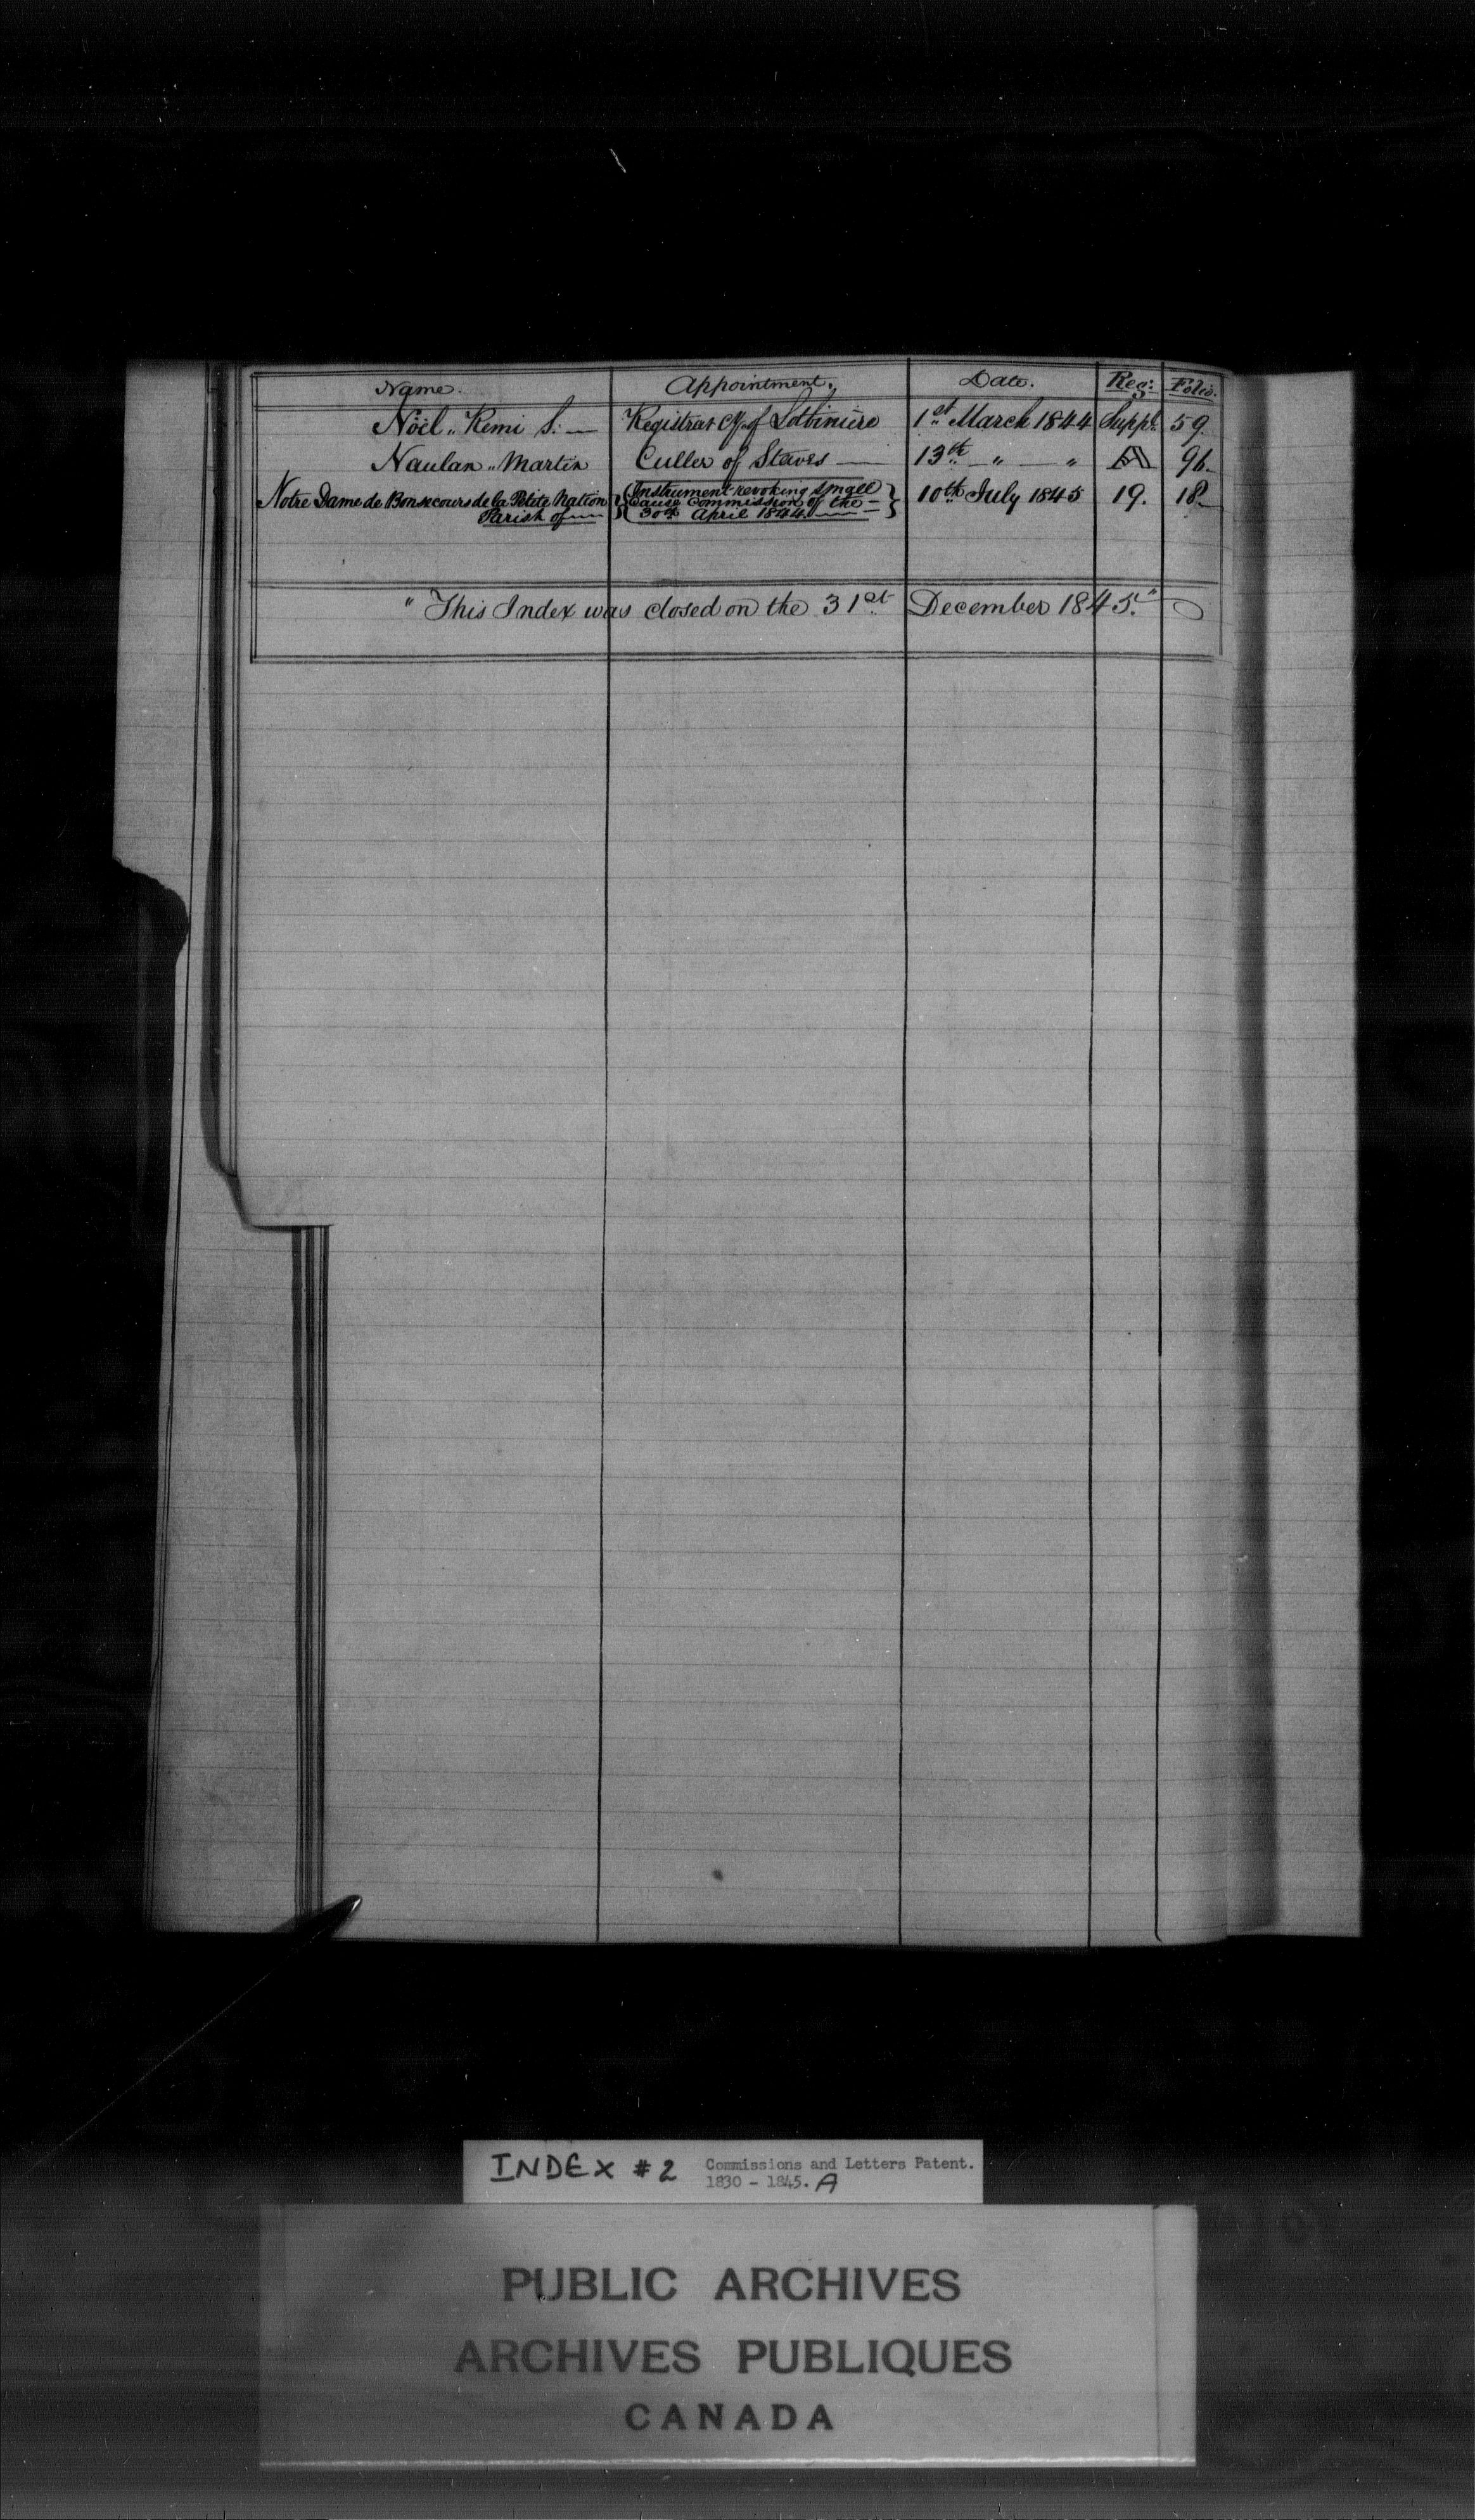 Name. Appointment. Date. Reg: Folio.
Nöel „ Remi S. — Registrar Cy. of Lotbiniere 1st March 1844 Suppt. 59.
Naulan „ Martin Culler of Staves — 13th — „ — „ A 96.
Notre Dame de Bonsecours de la Petite Nation Parish of — Instrument revoking small Cause Commission of the — 30th April 1844. — 10th July 1845 19. 18.
" This Index was closed on the 31st. December 1845."
INDEX # 2 Commissions and Letters Patent.
1830 - 1845. A
PUBLIC ARCHIVES
ARCHIVES PUBLIQUES
CANADA